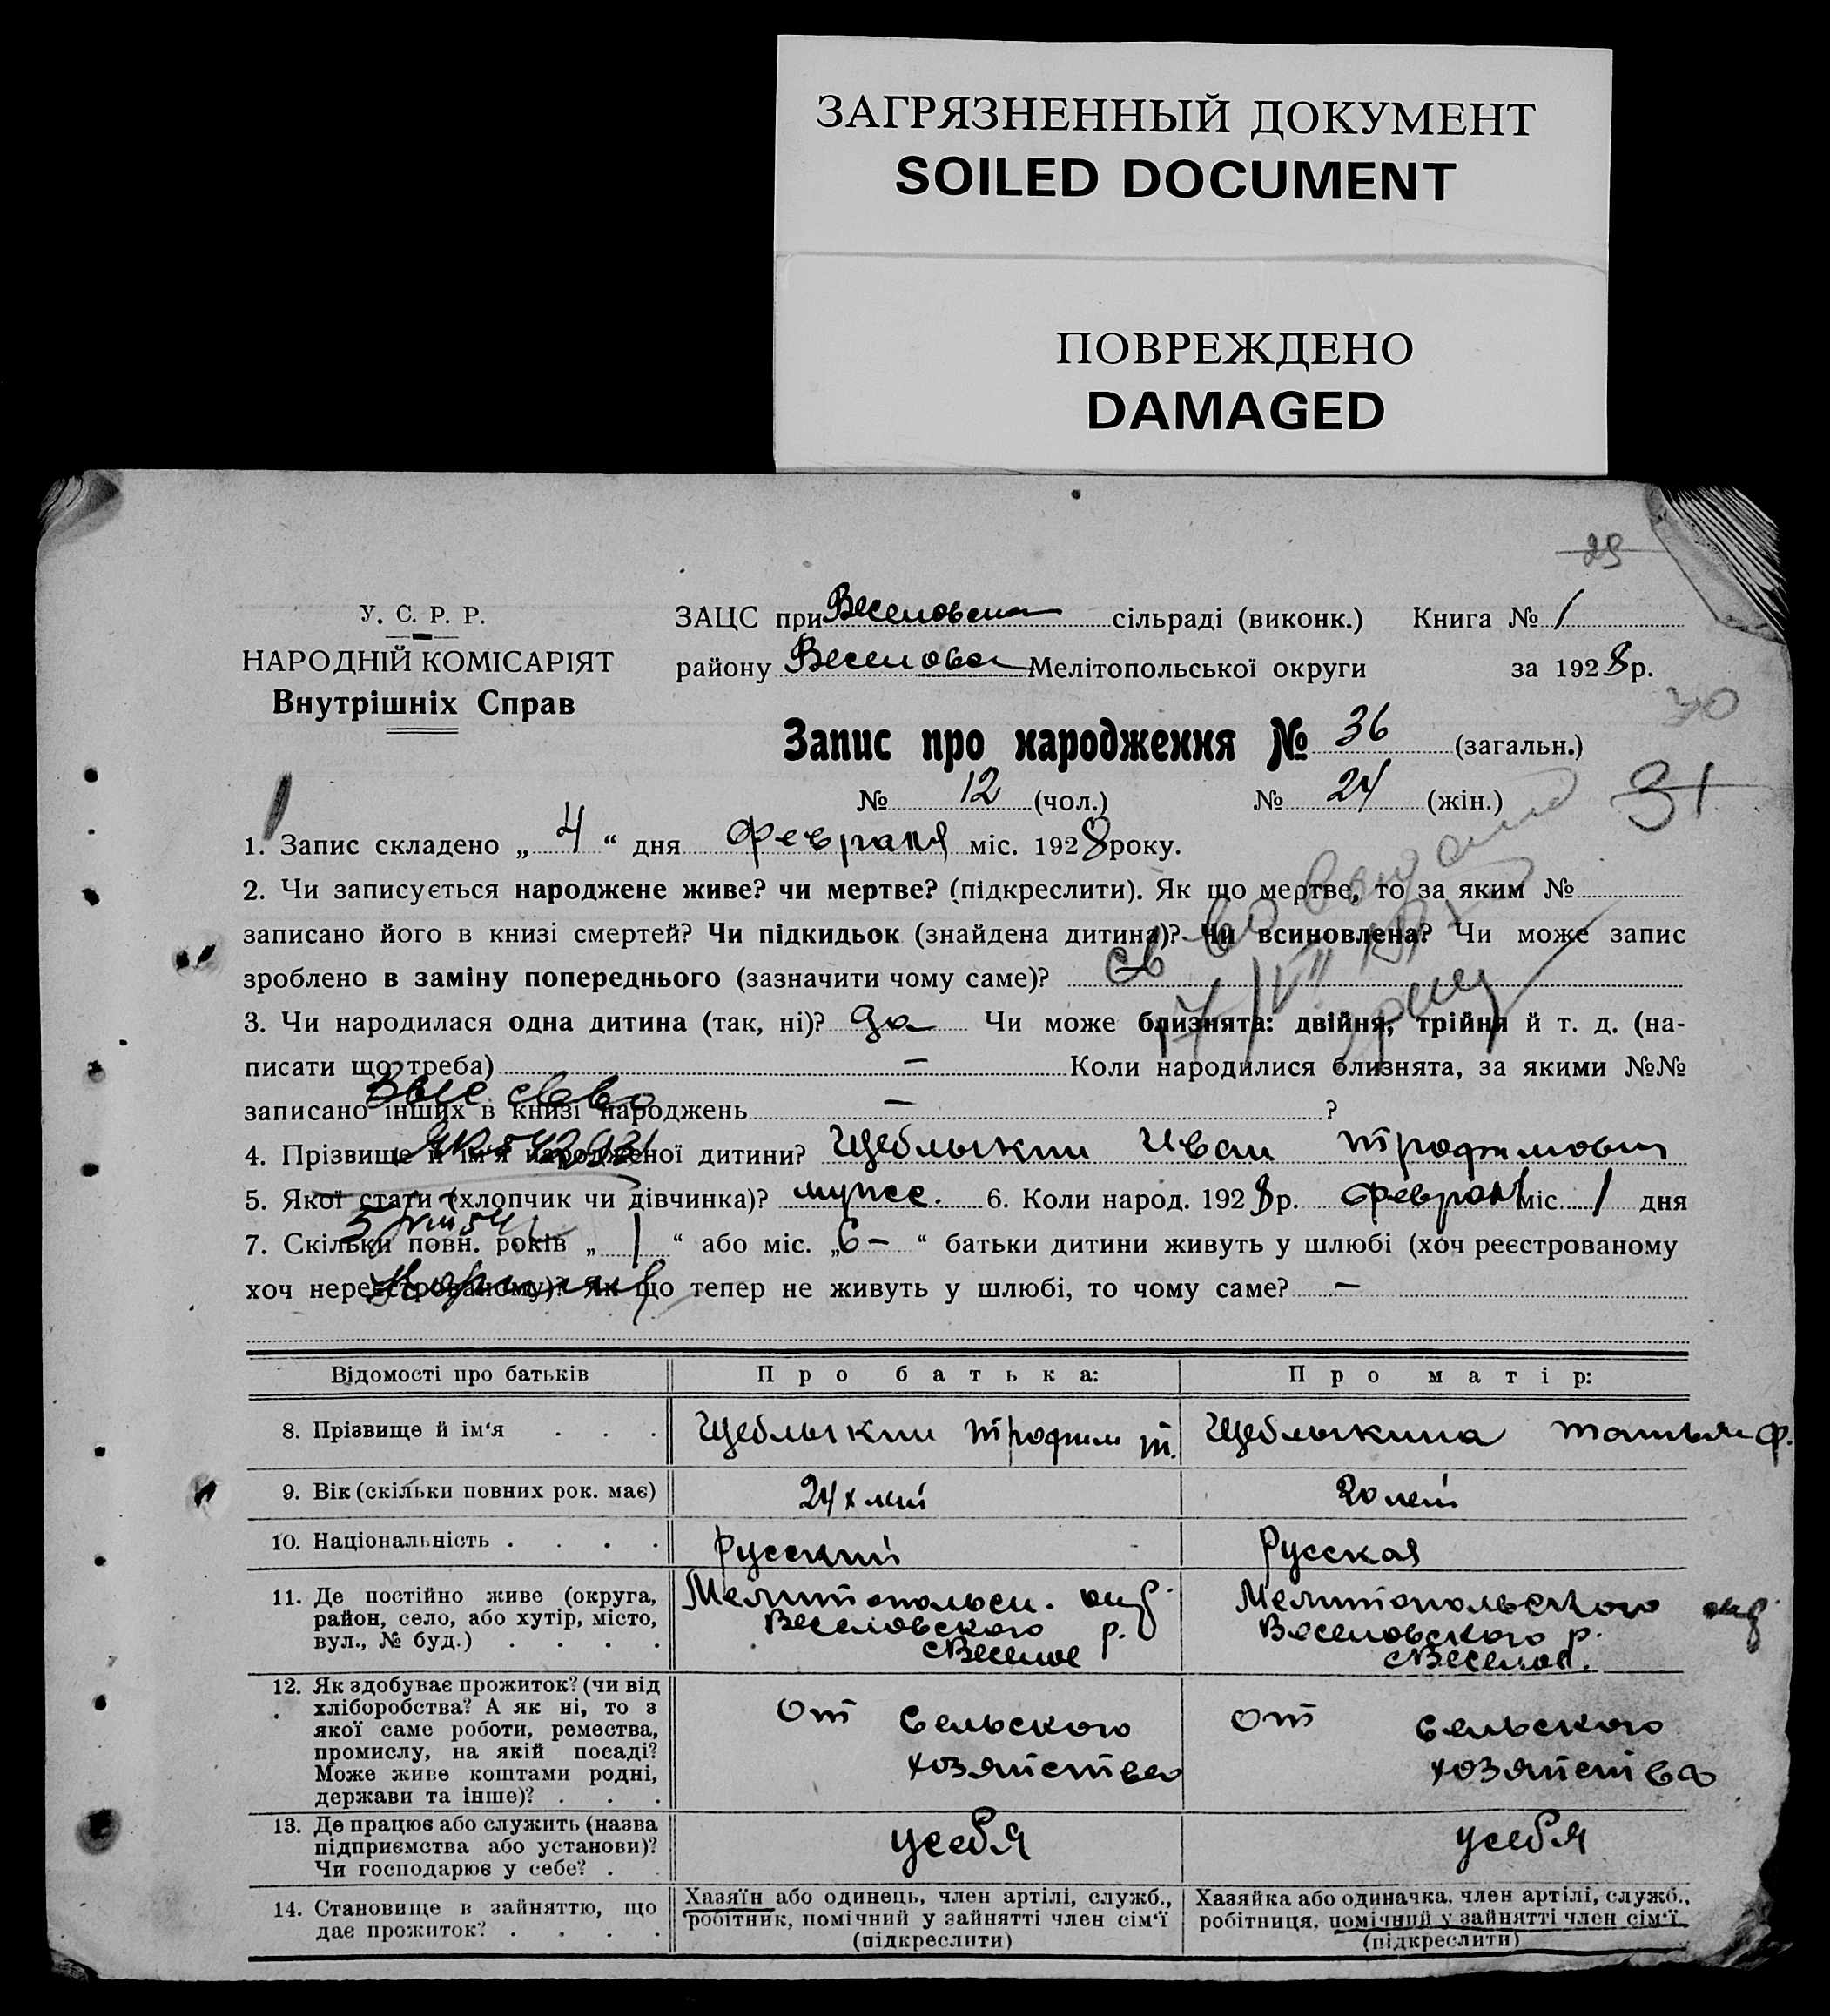 ЗАГРЯЗНЕННЫЙ ДОКУМЕНТ
SOILED DOCUMENT
ПОВРЕЖДЕНО
DAMAGED
29
У. С. Р. Р.
НАРОДНІЙ КОМІСАРІЯТ
Внутрішніх Справ
ЗАЦС при Веселовском сільраді (виконк.) Книга № 1
району Веселовск Мелітопольської округи за 1928 р.
30
Запис про народження № 36 (загальн.)
№ 12 (чол.) № 24 (жін.)
31
1. Запис складено „ 4 “ дня Февраля міс. 1928 року.
2. Чи записується народжене живе? чи мертве? (підкреслити). Як що мертве, то за яким №
записано його в книзі смертей? Чи підкидьок (знайдена дитина)? Чи всиновлена? Чи може запис
зроблено в заміну попереднього (зазначити чому саме)?
св во выдано
3. Чи народилася одна дитина (так, ні)? да Чи може близнята: двійня, трійня й т. д. (на-
писати що треба) — Коли народилися близнята, за якими №№
записано інших в книзі народжень — ?
4. Прізвище й ім'я народженої дитини? Щеблыкин Иван Трофимович
5. Якої стати (хлопчик чи дівчинка)? мужс. 6. Коли народ. 1928 р. Февраля міс. 1 дня
7. Скільки повн. років „ 1 “ або міс. „ 6 — “ батьки дитини живуть у шлюбі (хоч реєстрованому
хоч нереєстрованому)? Як що тепер не живуть у шлюбі, то чому саме? —
Відомості про батьків Про батька: Про матір:
8. Прізвище й ім'я . . . Щеблыкин Трофим Т. Щеблыкина Татьян Ф.
9. Вік (скільки повних рок. має) 24х лет 20 лет
10. Національність . . . . русский Русская
11. Де постійно живе (округа,
район, село, або хутір, місто,
вул., № буд.) . . . .
Мелитопольск. окр.
Веселовского р.
с Веселое
Мелитопольского окр
Веселовского р.
с Веселое.
12. Як здобуває прожиток? (чи від
хліборобства? А як ні, то з
якої саме роботи, ремества,
промислу, на якій посаді?
Може живе коштами родні,
держави та інше)? . . .
От сельского
хозяйства
От сельского
хозяйства
13. Де працює або служить (назва
підприємства або установи)?
Чи господарює у себе? . .
усебя
усебя
14. Становище в зайняттю, що
дає прожиток? . . . .
Хазяїн або одинець, член артілі, служб.,
робітник, помічний у зайнятті член сім'ї
(підкреслити)
Хазяйка або одиначка, член артілі, служб.,
робітниця, помічний у зайнятті член сім'ї
(підкреслити)